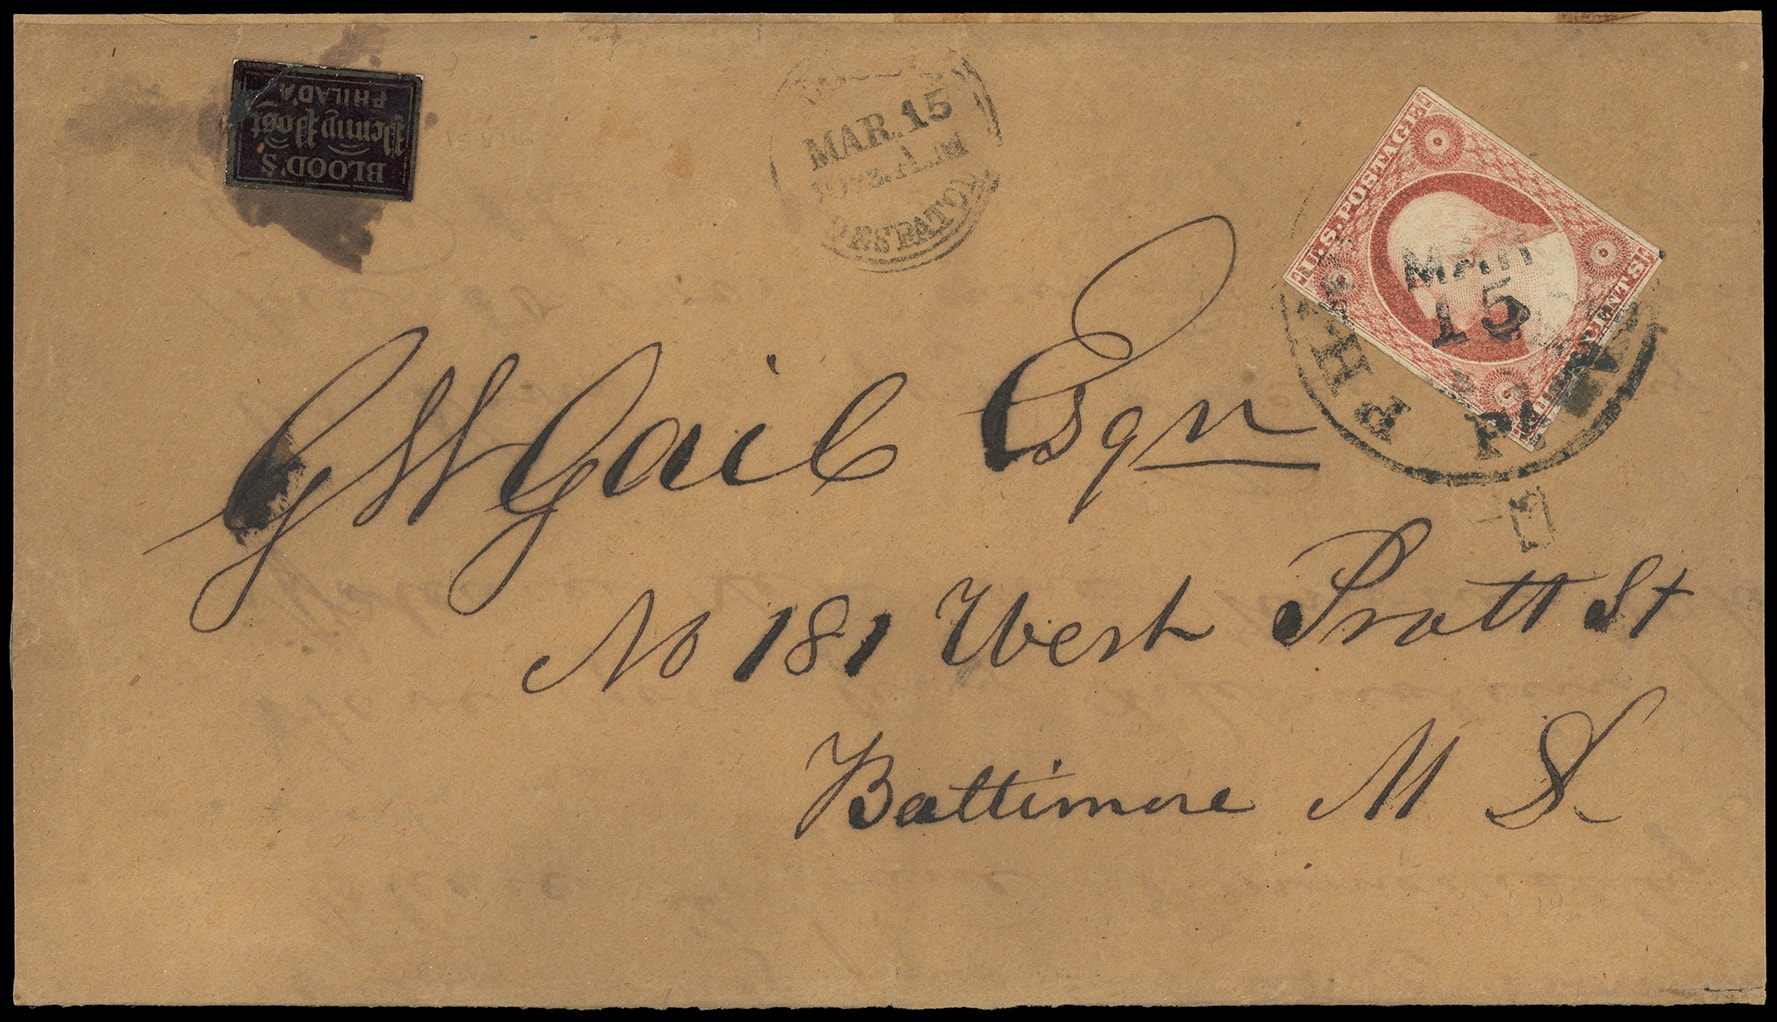 BLOOD'S
Penny Post
PHILAD'A
MAR. 15
A.M
DESPATCH
U.S. POSTAGE
CENTS
MAR
15
PHI
PA
G W Gail Esqr
No 181 West Pratt St
Baltimore M D